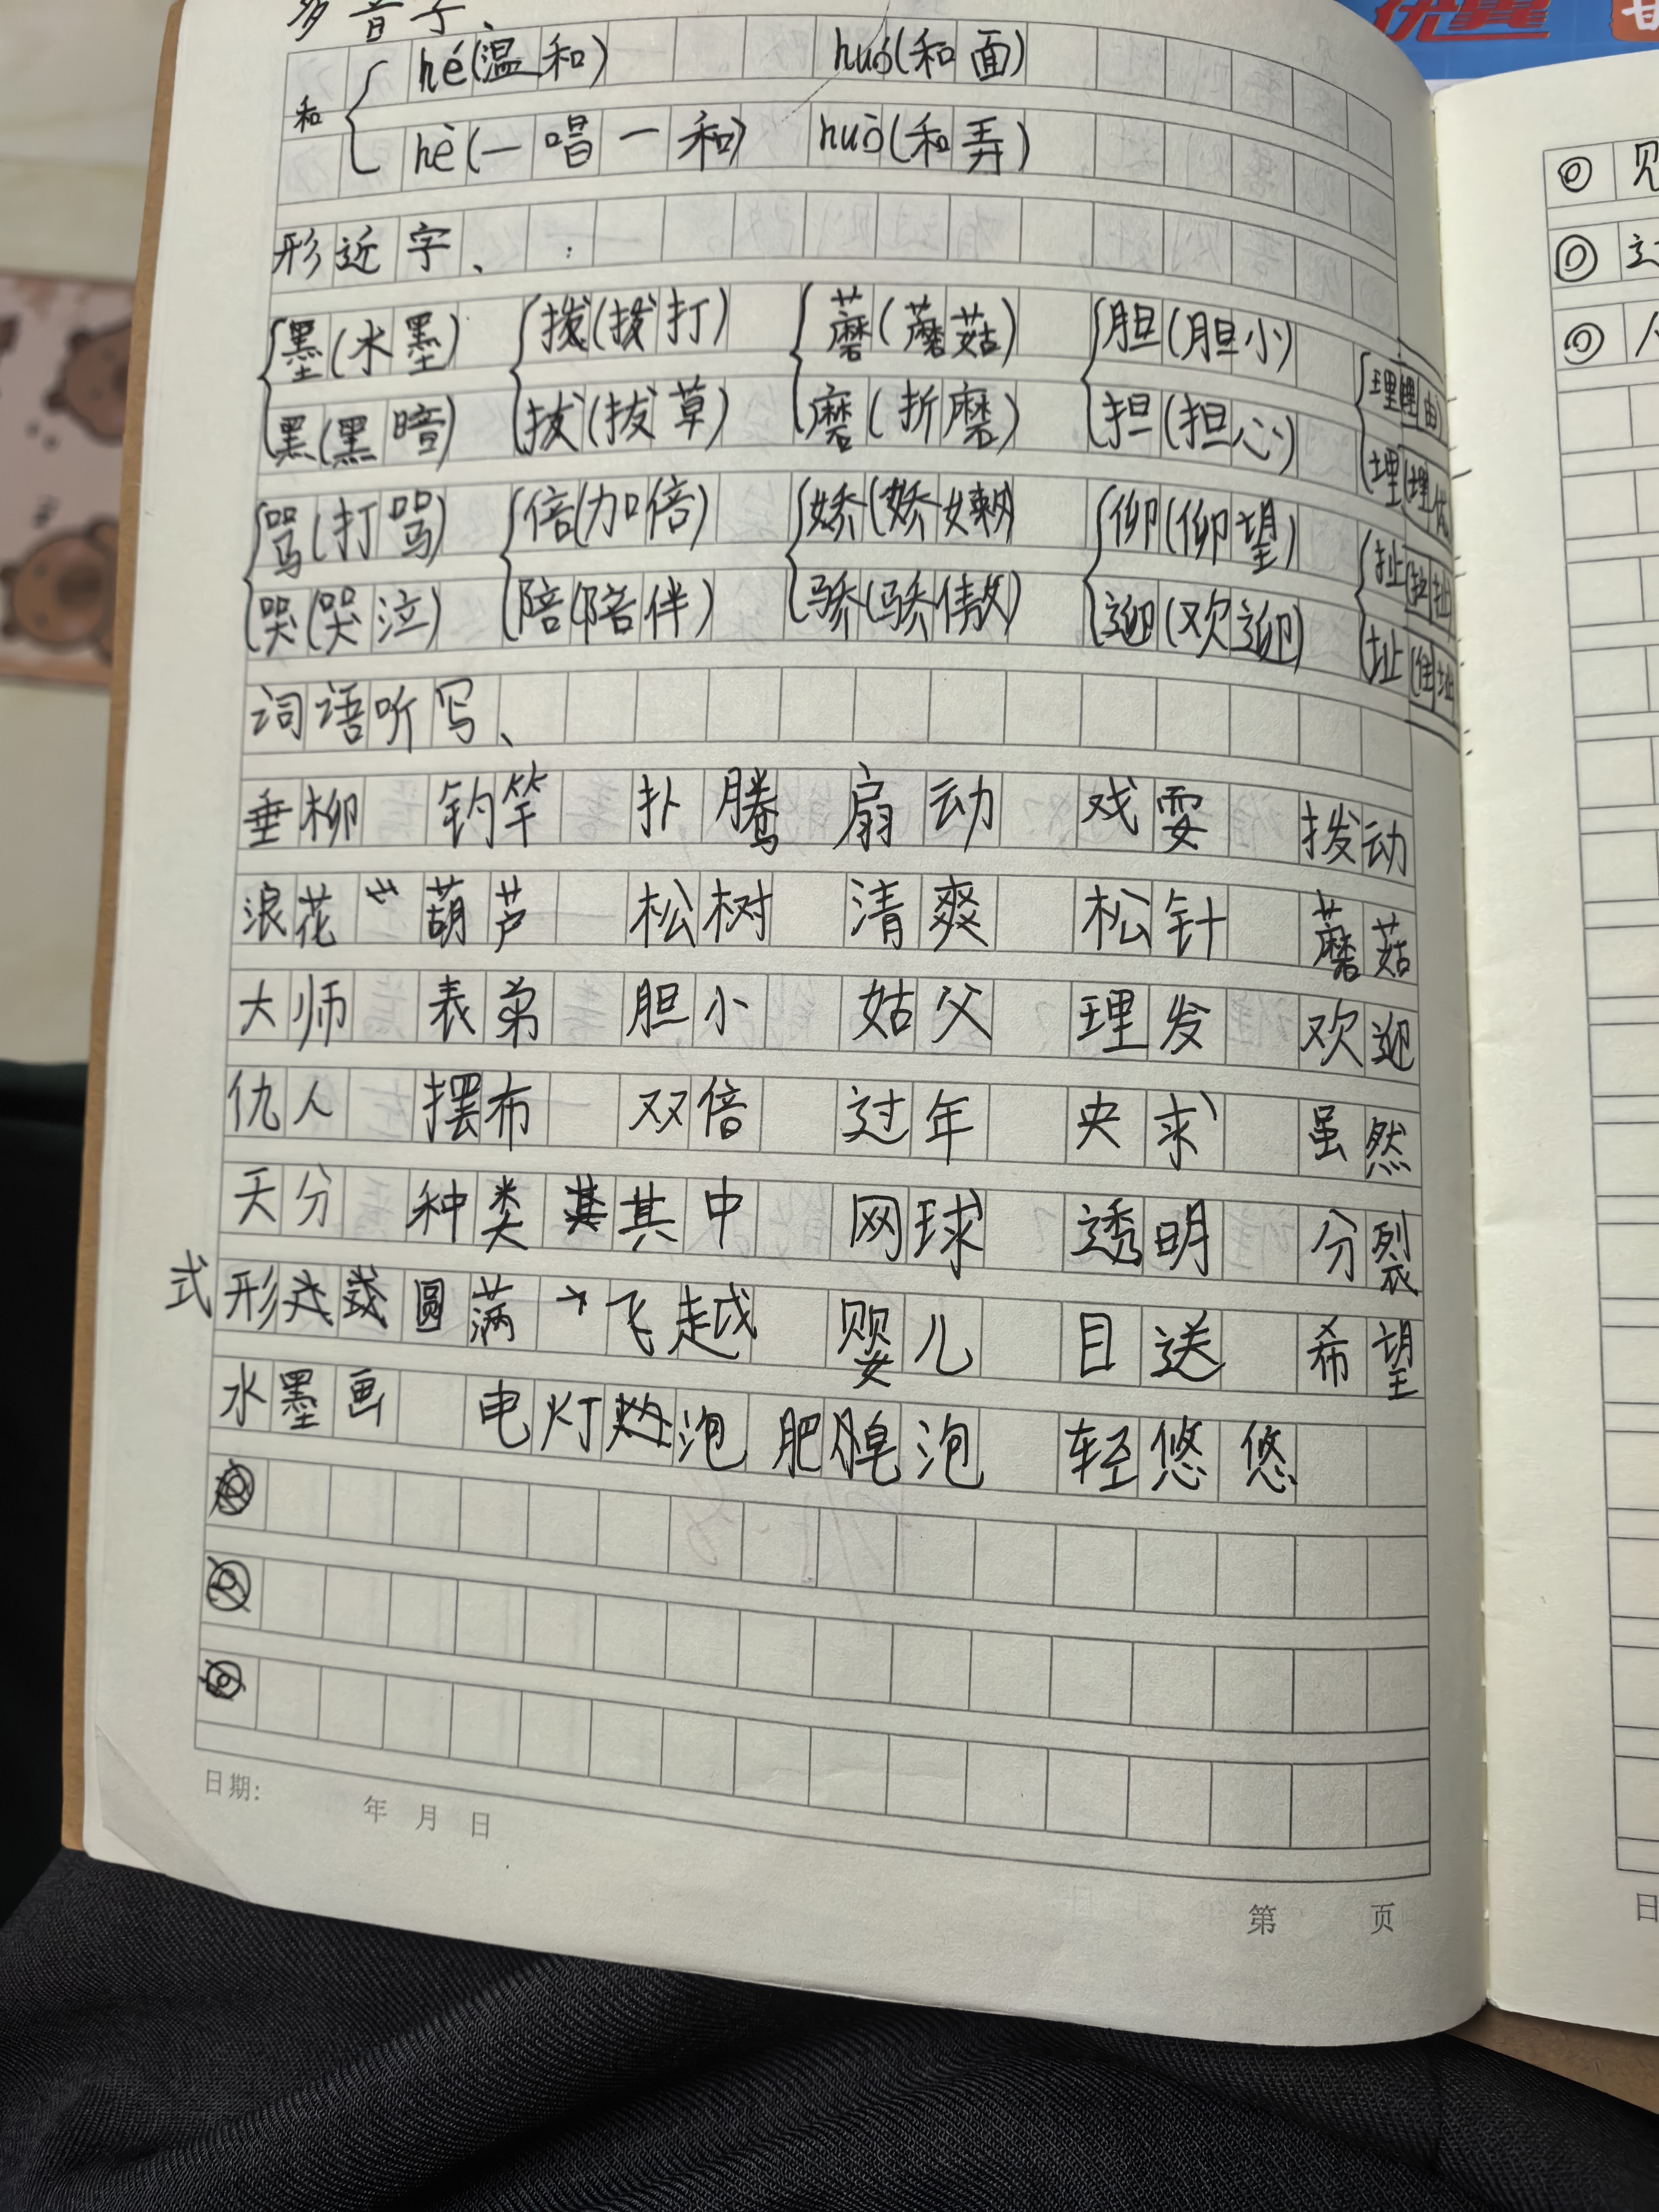 多音字、
和 hé(温和) huó(和面)
hè(一唱一和) huò(和弄)
形近字、
墨(水墨) 拨(拨打) 蘑(蘑菇) 胆(胆小) 理(理由)
黑(黑暗) 拔(拔草) 磨(折磨) 担(担心) 埋(埋伏)
骂(打骂) 倍(加倍) 娇(娇嫩) 仰(仰望) 扯(拉扯)
哭(哭泣) 陪(陪伴) 骄(骄傲) 迎(欢迎) 址(住址)
词语听写、
垂柳 钓竿 扑腾 扇动 戏耍 拨动
浪花 葫芦 松树 清爽 松针 蘑菇
大师 表弟 胆小 姑父 理发 欢迎
仇人 摆布 双倍 过年 央求 虽然
天分 种类 其中 网球 透明 分裂
形式 圆满 飞越 婴儿 目送 希望
水墨画 电灯泡 肥皂泡 轻悠悠
日期: 年 月 日
第 页